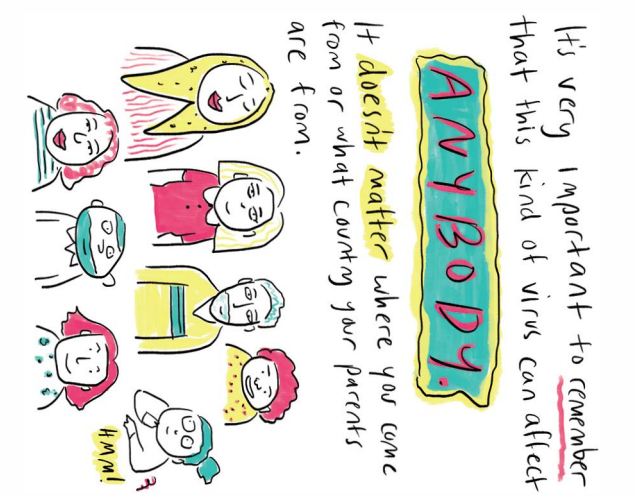 It's very important to remember
that this kind of virus can affect
ANYBODY.
It doesn't matter where you come
from or what country your parents
are from.
HMM!